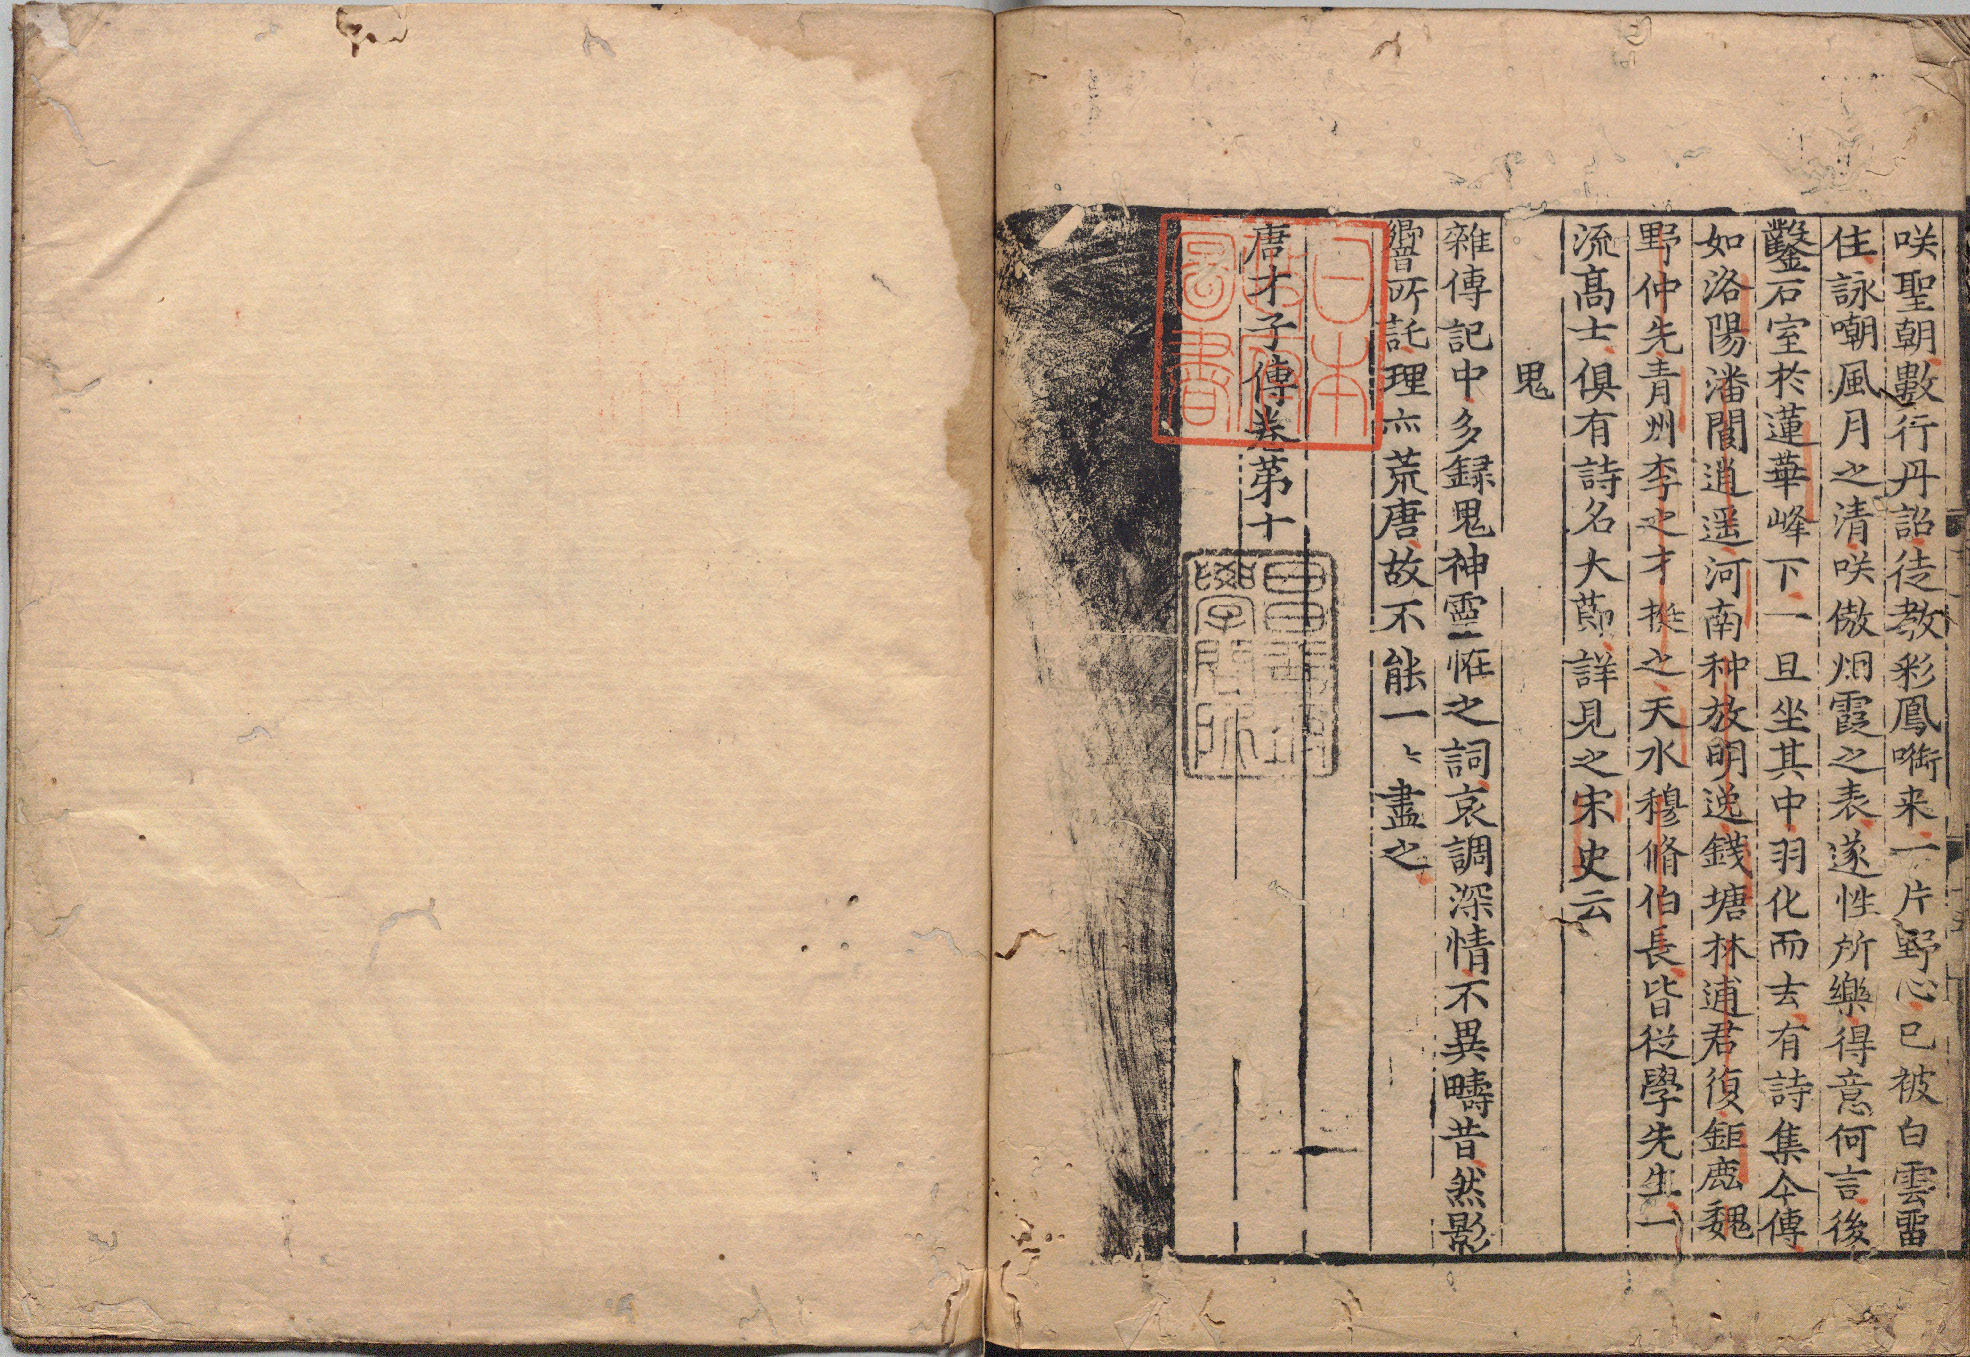 咲聖朝數行丹詔徒教彩鳳啣来一片野心已被白雲畱
住詠嘲風月之清咲傲烟霞之表遂性所樂得意何言後
鑿石室於蓮華峰下一旦坐其中羽化而去有詩集今傳
如洛陽潘閬逍遥河南种放明逸錢塘林逋君復鉅鹿魏
野仲先青州李之才挺之天水穆脩伯長皆従學先生一
流高士俱有詩名大莭詳見之宋史云
鬼
雜傳記中多録鬼神靈恠之詞哀調深情不異疇昔然影
響所託理亦荒唐故不能一〻盡之
唐才子傳卷苐十
日本
政府
圖書